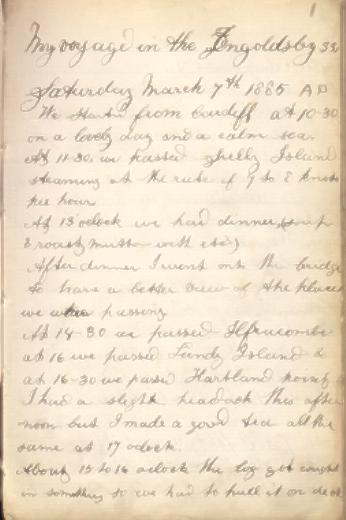 1
My voyage in the Ingoldsby SS
Saturday March 7th 1885 AD
We started from Cardiff at 10-30
on a lovely day and a calm sea.
At 11-30 we passed Shelly Island
steaming at the rate of 7 to 8 knots
per hour
At 13 oclock we had dinner (soup
& roast mutton with etcs)
After dinner I went onto the bridge
to have a better view of the places
we were passing
At 14-30 we passed Ilfracombe
at 16 we passed Lundy Island &
at 16-30 we passed Hartland point
I had a slight headach this after
noon but I made a good tea all the
same at 17 oclock.
About 15 to 16 oclock the log got caught
in something so we had to pull it on deck